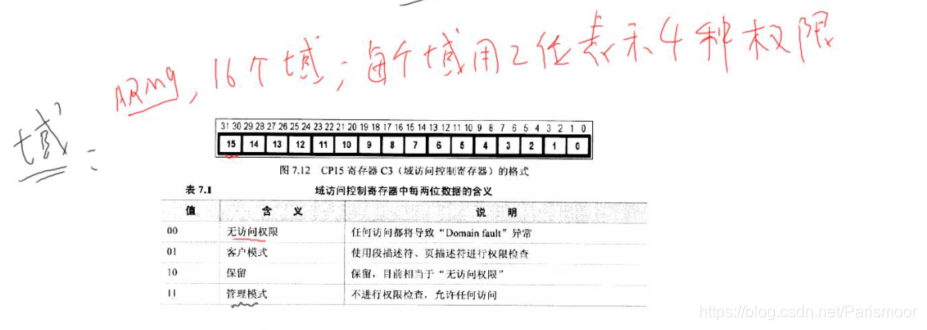 ARM9, 16个域；每个域用2位表示4种权限
域：
31 30 29 28 27 26 25 24 23 22 21 20 19 18 17 16 15 14 13 12 11 10 9 8 7 6 5 4 3 2 1 0
15 14 13 12 11 10 9 8 7 6 5 4 3 2 1 0
图 7.12 CP15 寄存器 C3（域访问控制寄存器）的格式
表 7.1 域访问控制寄存器中每两位数据的含义
值 含 义 说 明
00 无访问权限 任何访问都将导致“Domain fault”异常
01 客户模式 使用段描述符、页描述符进行权限检查
10 保留 保留，目前相当于“无访问权限”
11 管理模式 不进行权限检查，允许任何访问
https://blog.csdn.net/Parismoor